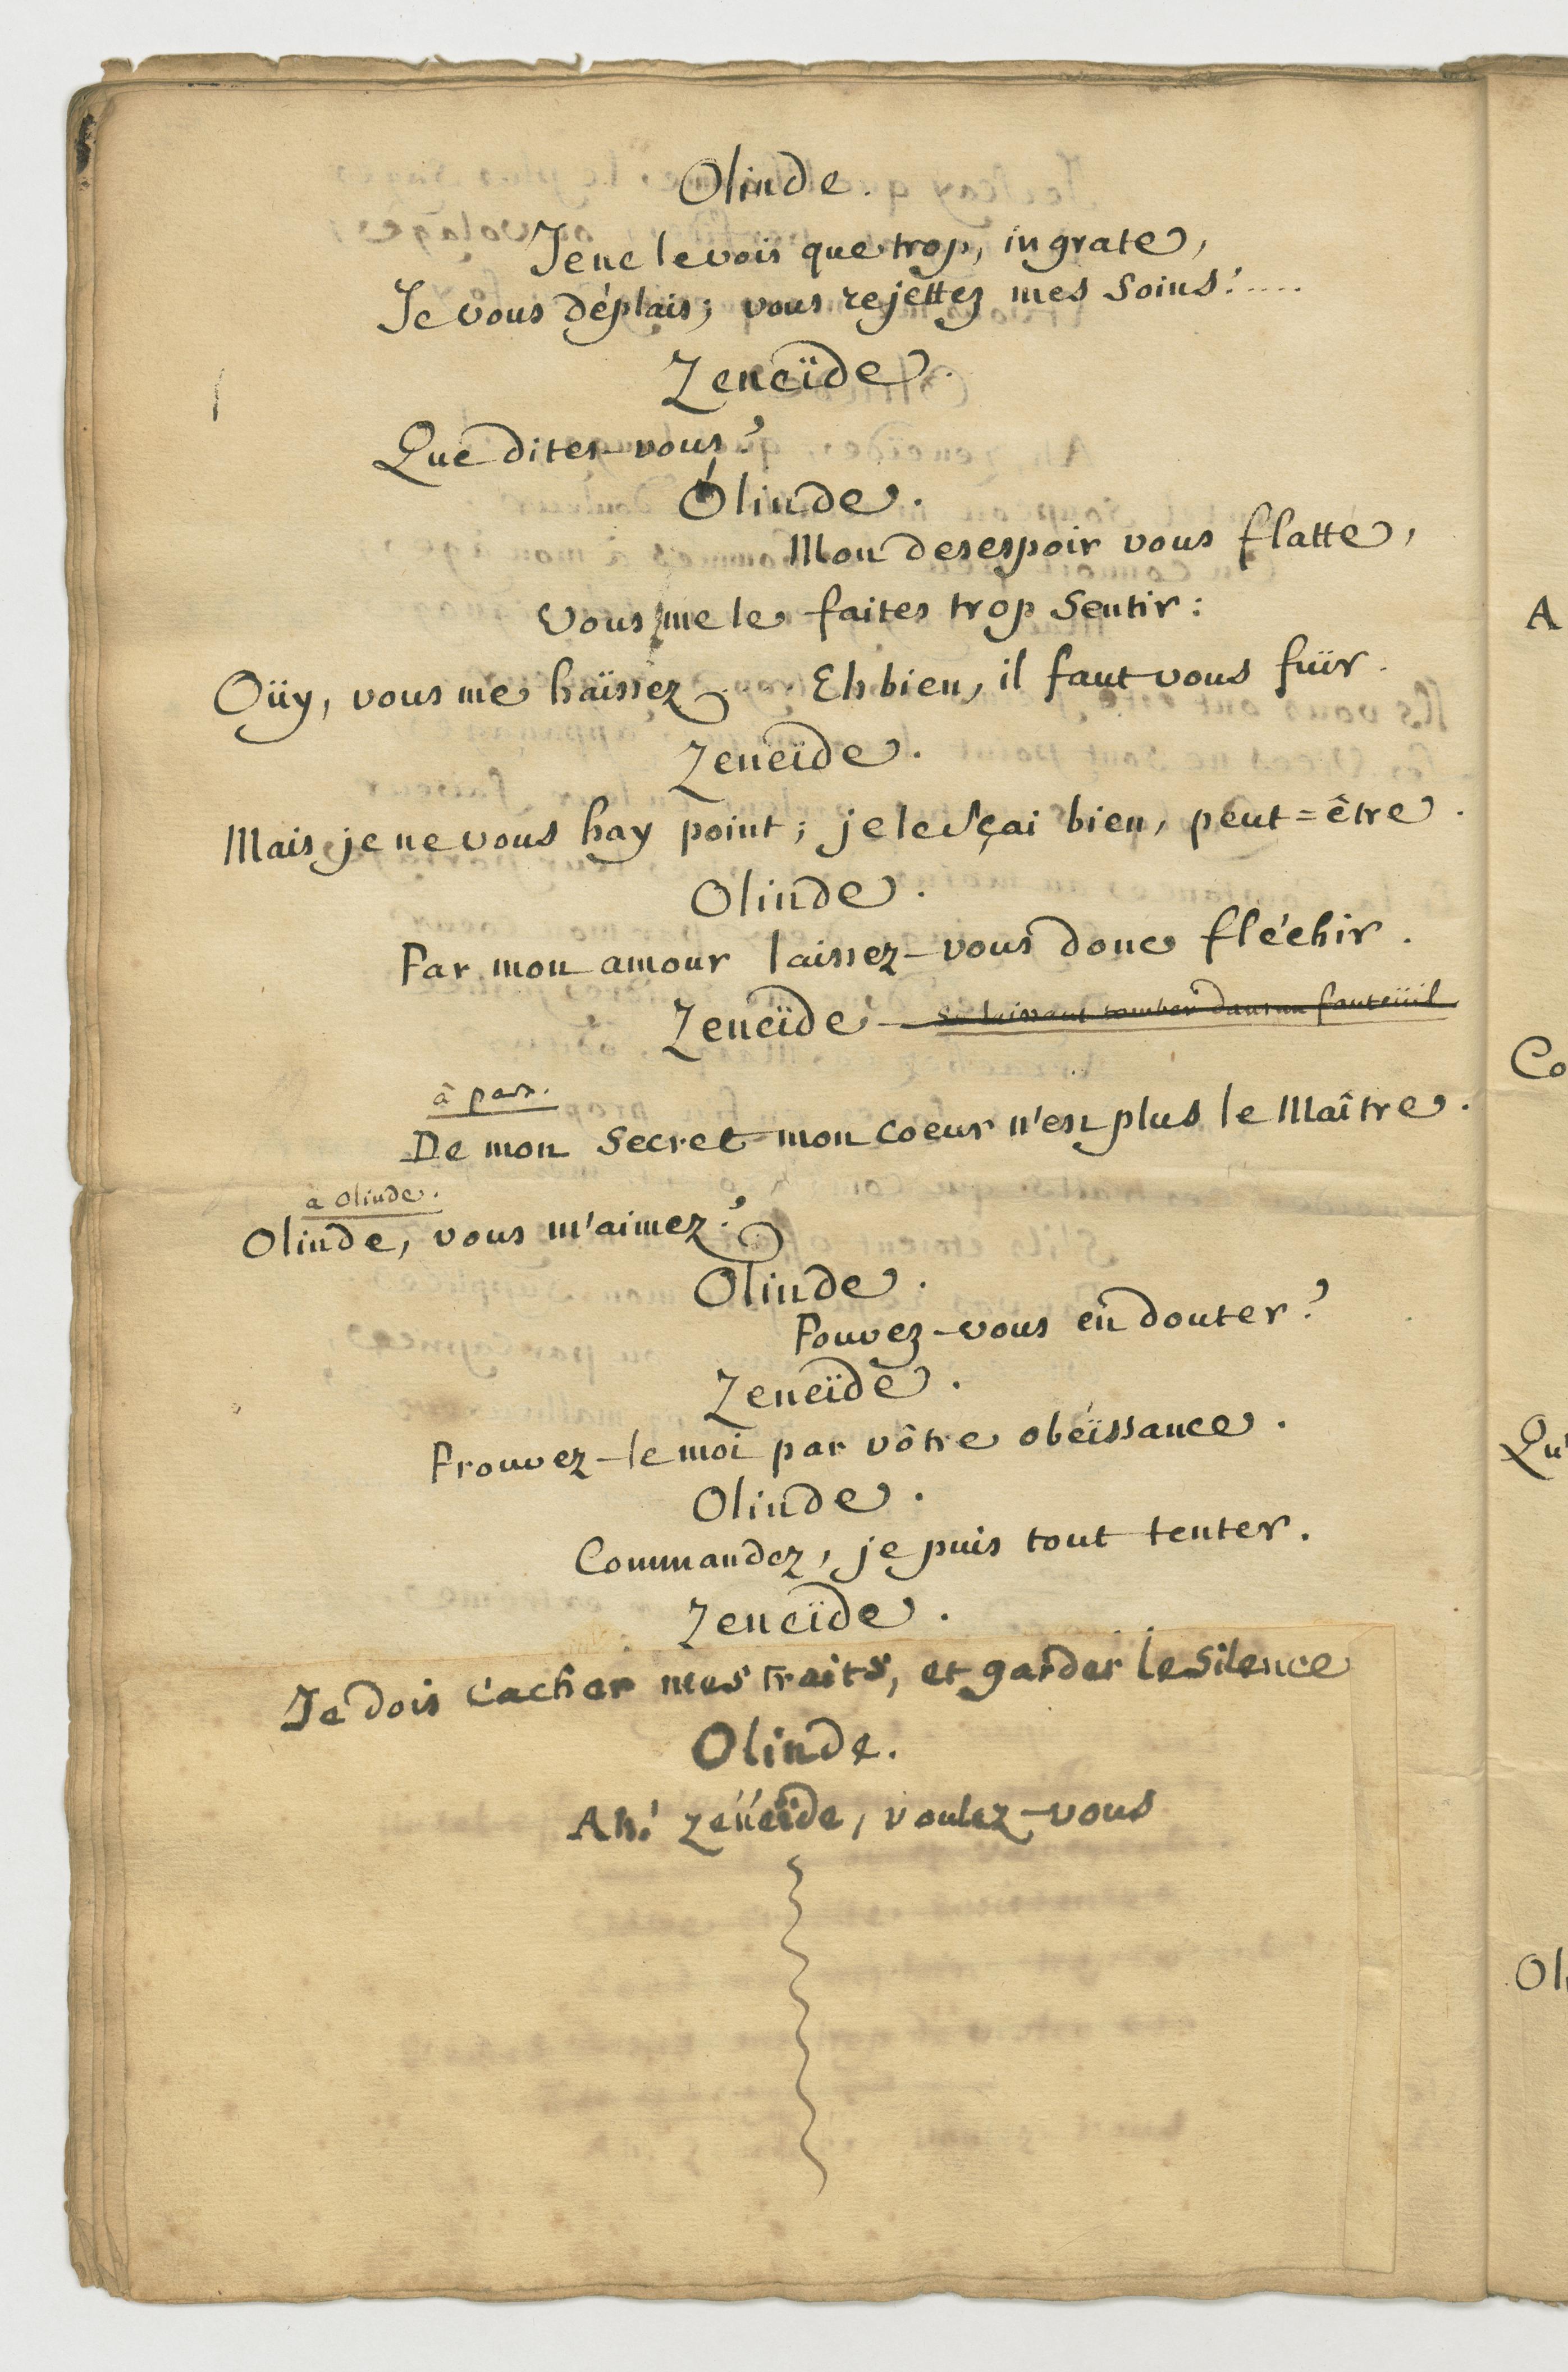 Olinde.
Je ne le vois que trop, ingrate,
Je vous déplais; vous rejettez mes Soins!.....
Zeneïde.
Que dites-vous?
Olinde.
Mon desespoir vous flatte,
Vous me le faites trop Sentir:
Oüy, vous me haïssez. Eh bien, il faut vous fuïr.
Zeneïde.
Mais je ne vous hay point; je le sçai bien, peut=être.
Olinde.
Par mon amour laissez-vous donc fléchir.
Zeneïde se laissant tomber dans un fauteüil
à part.
De mon Secret mon coeur n'est plus le Maître.
à Olinde.
Olinde, vous m'aimez?
Olinde.
Pouvez-vous en douter?
Zeneïde.
Prouvez-le moi par vôtre obeïssance.
Olinde.
Commandez, je puis tout tenter.
Zeneïde.
Je dois cacher mes traits, et garder le Silence
Olinde.
Ah! zeneïde, voulez-vous
A
Co
Qu'
Oli